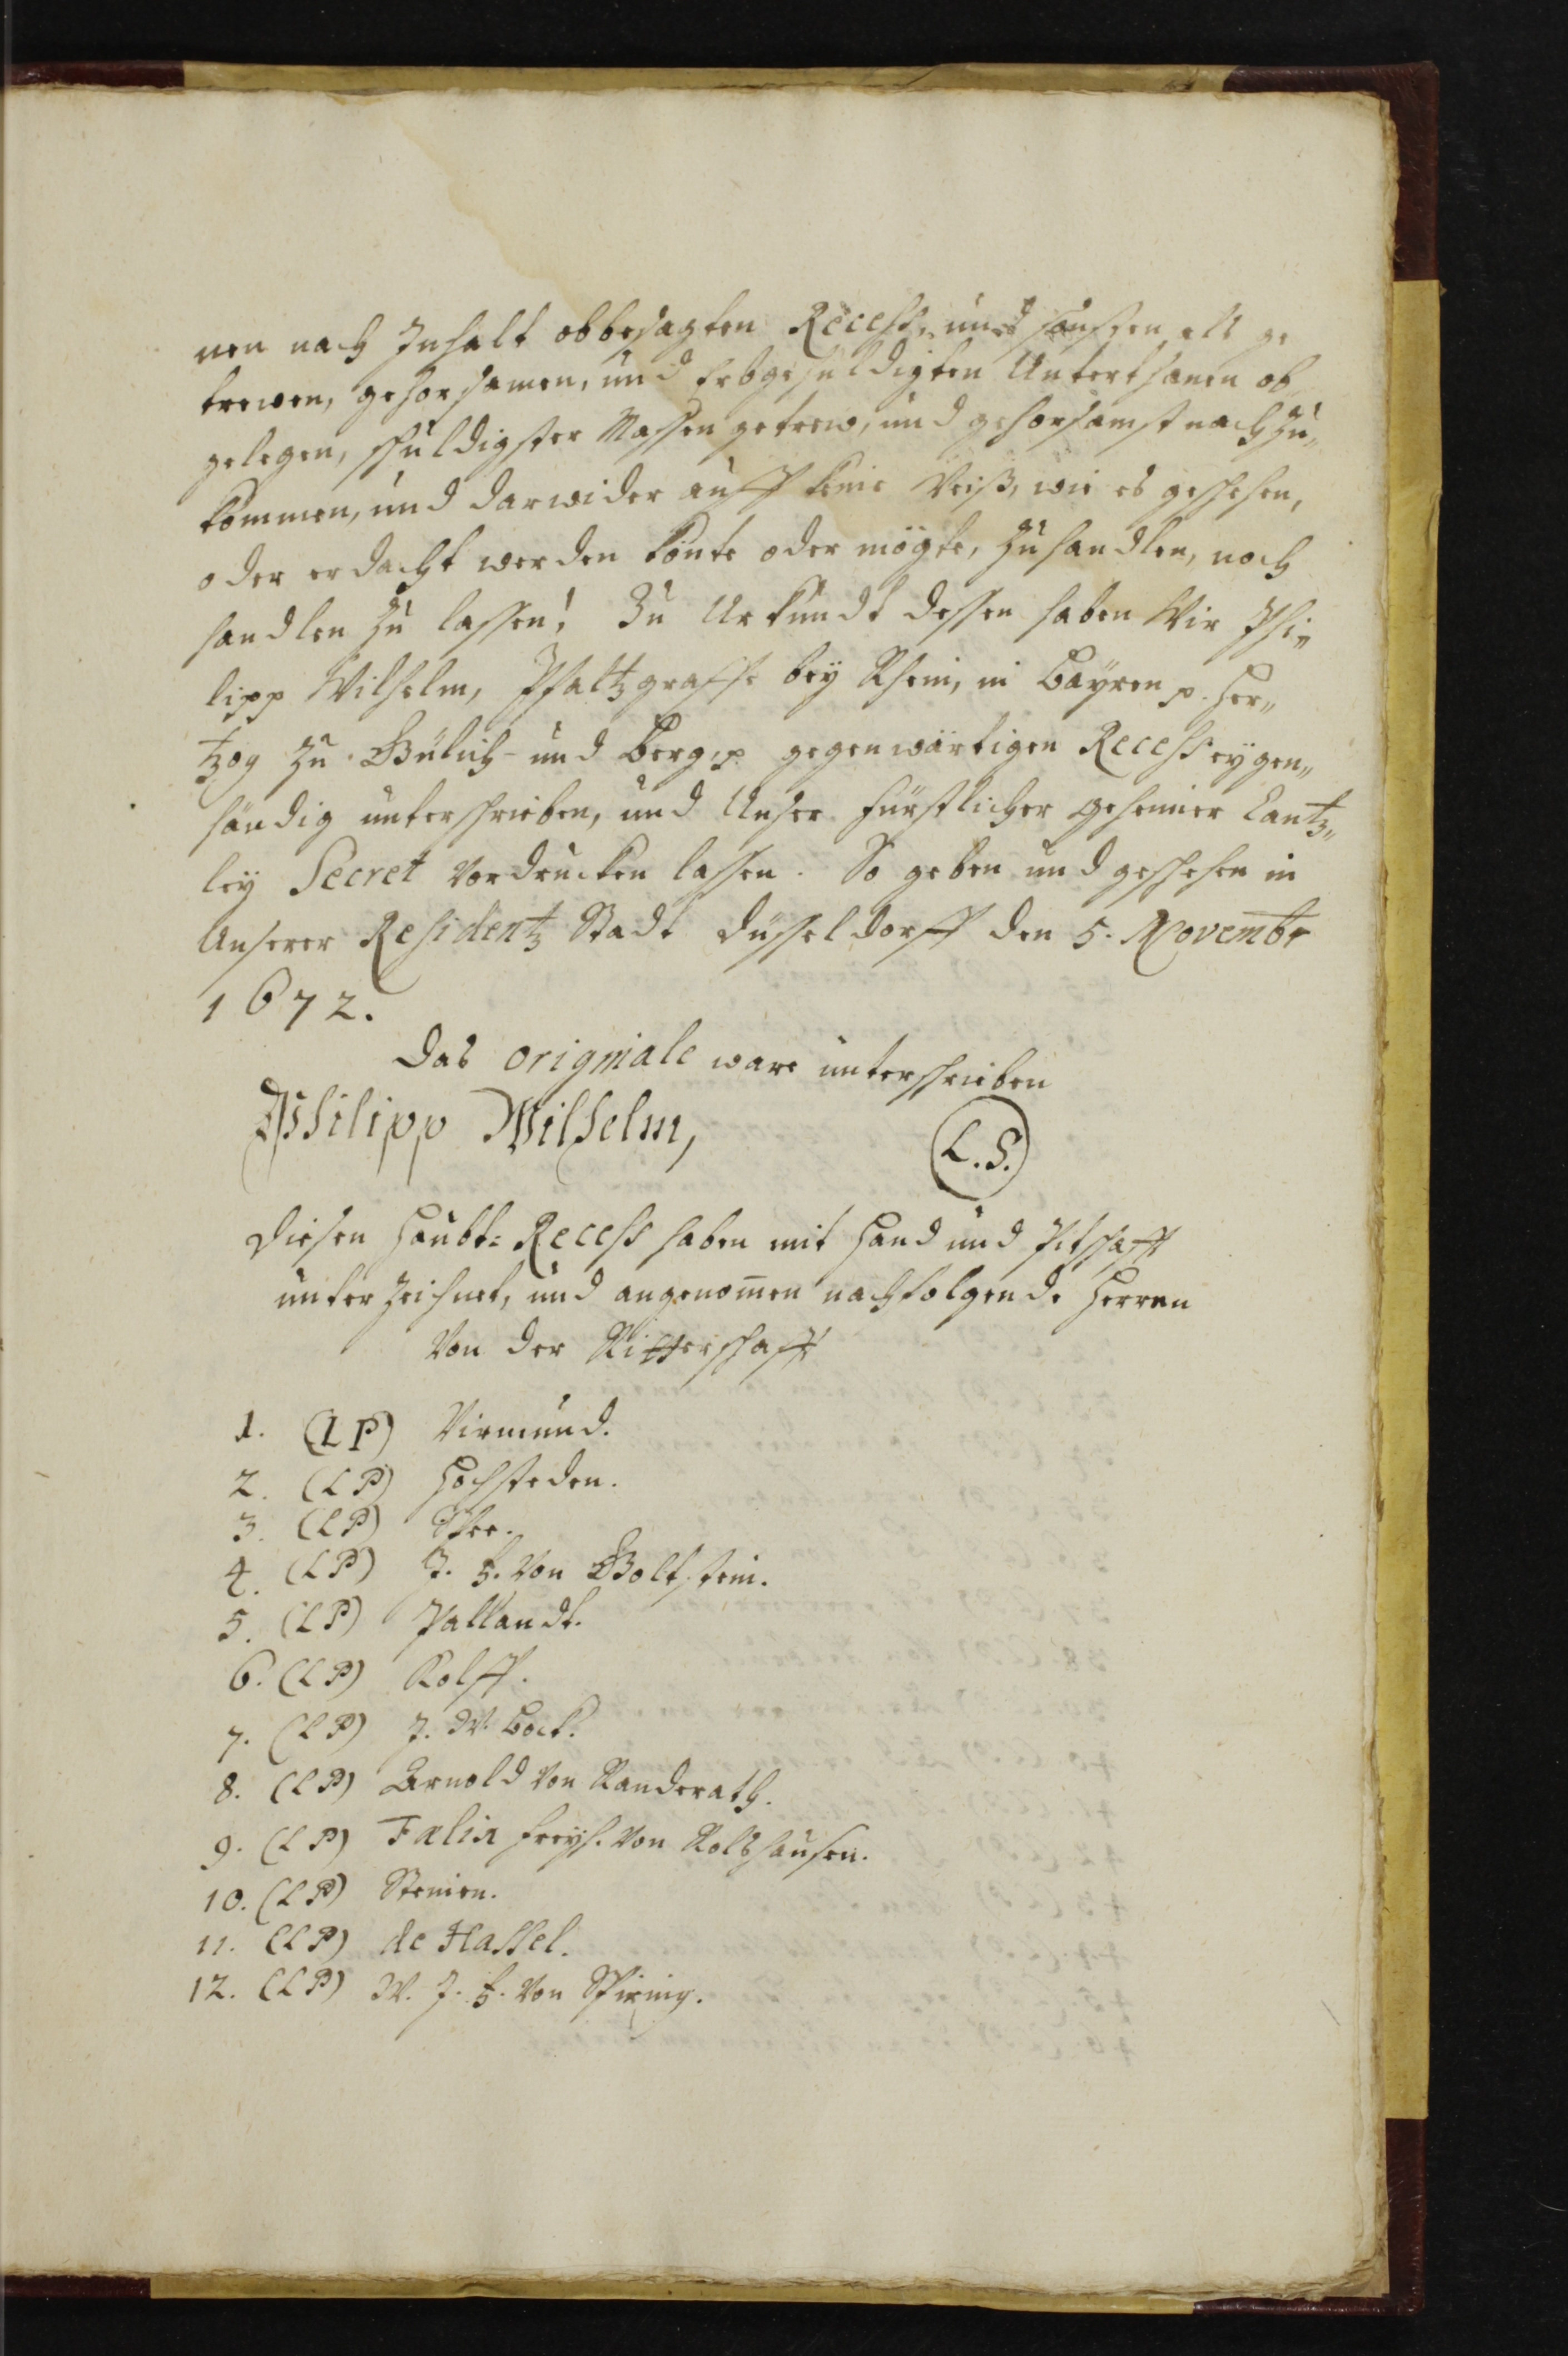 nen nach Inhalt obbesagten Recess, und sonsten als ge
trewen, gehorsamen, und Erbgehuldigten Unterthanen ob„
gelegen, schuldigster Massen getrew, und gehorsamst nachzu„
kommen, und darwider auff keine Weiß, wie es geschehen,
oder erdacht werden könte oder mögte, zu handlen, noch
handlen zu lassen! Zu Urkundt dessen haben Wir Phi„
lipp Wilhelm, Pfaltzgraffe bey Rhein, in Bayren p. Her„
tzog zu Gülich- und Berg, p gegenwärtigen Recess eygen„
händig unterschrieben, und Unser fürstlicher geheimer Cantz„
ley Secret vordrucken lassen. So geben und geschehen in
Unserer Residentz Stadt Düsseldorff den 5. Novembr
1672.
Das originale ware unterschrieben
Philipp Wilhelm,
L.S.
Diesen Haubt= Recess haben mit Hand und Pitschafft
unterzeichnet, und angenom̄en nachfolgende Herren
Von der Ritterschafft
1. (LP) Virmund.
2. (LP) Hochsteden.
3. (LP) Spee.
4. (LP) J. F. von Goltstein.
5. (LP) Pallandt.
6. (LP) Rolff.
7. (LP) J. W. Bock.
8. (LP) Arnold von Randerath.
9. (LP) Freyh. von Rolshausen.
10. (LP) Steinen.
11. (LP) de Hassel.
12. (LP) W. J. F. von Spiring.